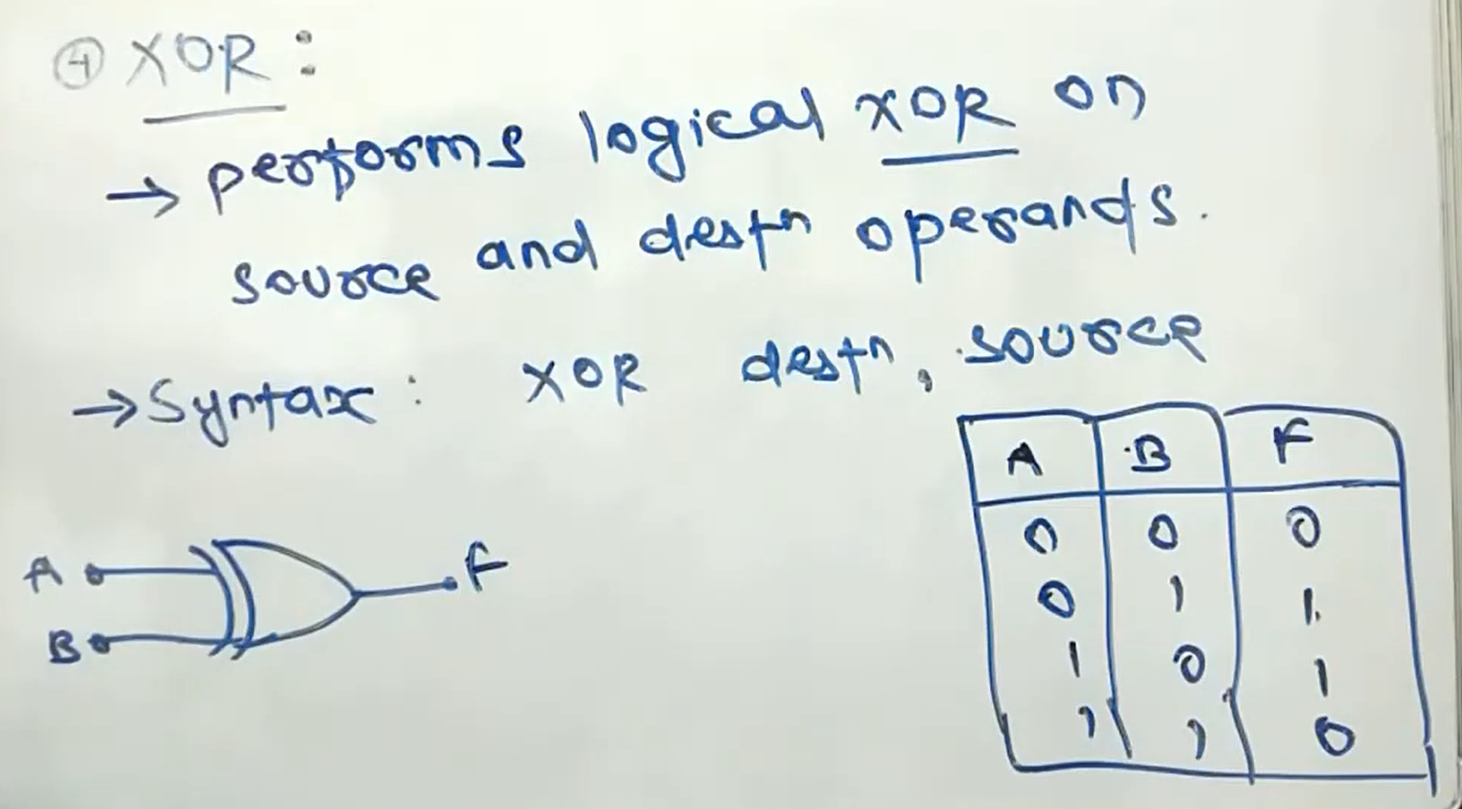 ④ XOR :
→ performs logical XOR on
source and destn operands.
→ Syntax : XOR destn, source
A B F
0 0 0
0 1 1
1 0 1
1 1 0
A F
B